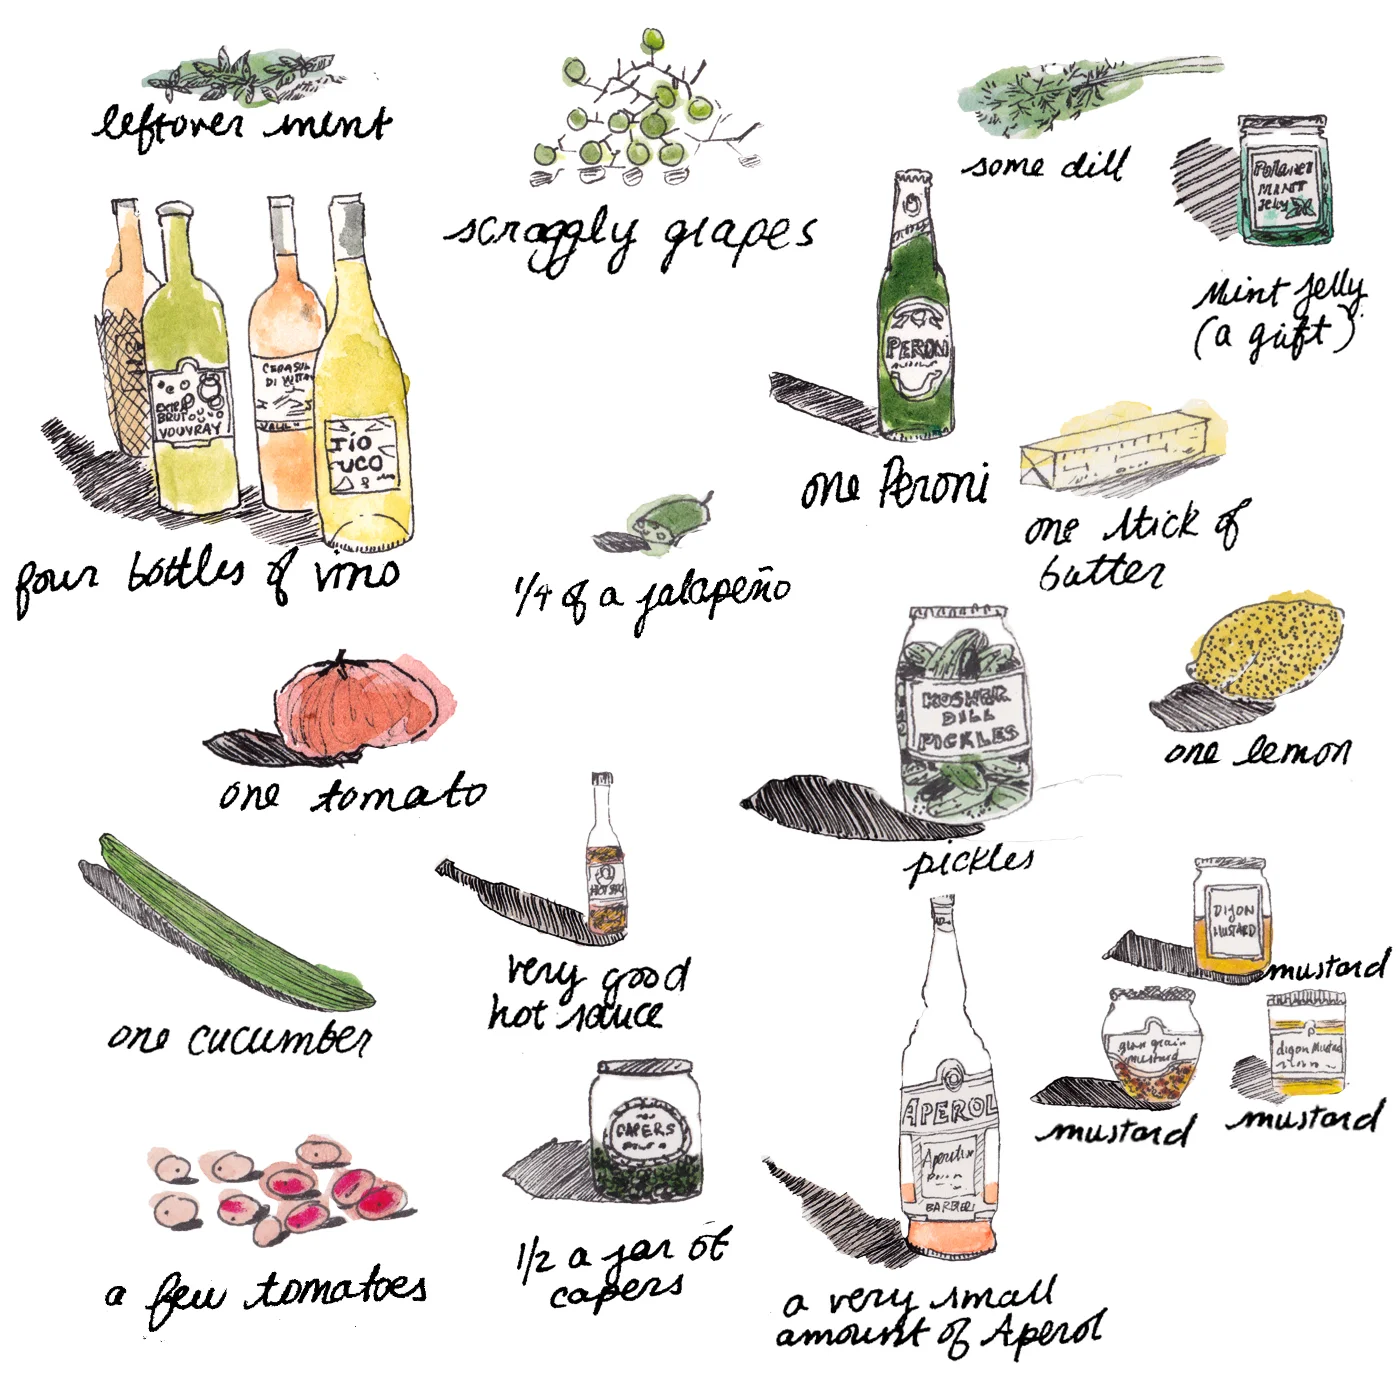 leftover mint
scraggly grapes
some dill
POLANER
MINT
Jelly
Mint Jelly
(a gift)
EXTRA
BRUT
VOUVRAY
CERASUO
DI VITTO
TÍO
UCO
four bottles of vino
PERONI
one Peroni
1/4 of a jalapeño
one stick of
butter
one tomato
KOSHER
DILL
PICKLES
pickles
one lemon
one cucumber
HOT
very good
hot sauce
DIJON
MUSTARD
mustard
grain
mustard
mustard
dijon Mustard
mustard
a few tomatoes
CAPERS
1/2 a jar of
capers
APEROL
Aperitivo
BARBIERI
a very small
amount of Aperol